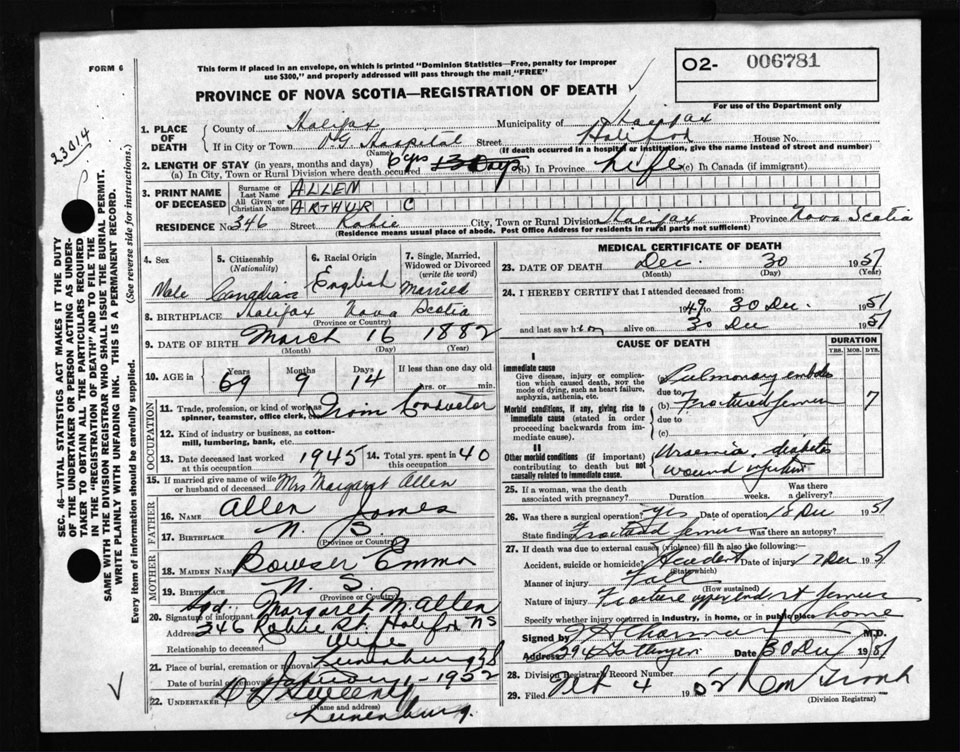 FORM 6
This form if placed in an envelope, on which is printed "Dominion Statistics—Free, penalty for improper
use $300," and properly addressed will pass through the mail "FREE"
O2- 006781
PROVINCE OF NOVA SCOTIA—REGISTRATION OF DEATH
For use of the Department only
23014
1. PLACE OF DEATH
County of Halifax Municipality of Halifax
If in City or Town V.G. Hospital Street Halifax House No.
(Name) (If death occurred in a hospital or institution, give the name instead of street and number)
2. LENGTH OF STAY (in years, months and days)
(a) In City, Town or Rural Division where death occurred 6 yrs 13 Days (b) In Province Life (c) In Canada (if immigrant)
3. PRINT NAME OF DECEASED
Surname or Last Name ALLEN
All Given or Christian Names ARTHUR C
RESIDENCE No. 346 Street Robie City, Town or Rural Division Halifax Province Nova Scotia
(Residence means usual place of abode. Post Office Address for residents in rural parts not sufficient)
4. Sex Male
5. Citizenship (Nationality) Canadian
6. Racial Origin English
7. Single, Married, Widowed or Divorced (write the word) Married
8. BIRTHPLACE Halifax Nova Scotia
(Province or Country)
9. DATE OF BIRTH March 16 1882
(Month) (Day) (Year)
10. AGE in Years 69 Months 9 Days 14 If less than one day old
hrs. or min.
OCCUPATION
11. Trade, profession, or kind of work as spinner, teamster, office clerk, etc. Train Conductor
12. Kind of industry or business, as cotton-mill, lumbering, bank, etc.
13. Date deceased last worked at this occupation 1945 14. Total yrs. spent in this occupation 40
15. If married give name of wife or husband of deceased Mrs Margaret Allen
FATHER
16. Name Allen James
17. Birthplace N. S.
(Province or Country)
MOTHER
18. Maiden Name Bowser Emma
19. Birthplace N. S.
(Province or Country)
20. Signature of informant Sgd. Margaret M. Allen
Address 346 Robie St. Halifax NS
Relationship to deceased Wife
21. Place of burial, cremation or removal Lunenburg
Date of burial or removal 1 - 1952
22. UNDERTAKER Sweeny
(Name and address)
Lunenburg.
MEDICAL CERTIFICATE OF DEATH
23. DATE OF DEATH Dec. 30 1951
(Month) (Day) (Year)
24. I HEREBY CERTIFY that I attended deceased from:
1949 30 Dec. 1951
and last saw him alive on 30 Dec 1951
CAUSE OF DEATH
DURATION
YRS. MOS. DYS.
I
Immediate cause
Give disease, injury or complication which caused death, not the mode of dying, such as heart failure, asphyxia, asthenia, etc.
(a) Pulmonary embolus
due to
Morbid conditions, if any, giving rise to immediate cause (stated in order proceeding backwards from immediate cause).
(b) Fractured femur 7
due to
(c)
II
Other morbid conditions (if important) contributing to death but not causally related to immediate cause.
Uraemia, diabetes
wound infection
25. If a woman, was the death associated with pregnancy? Duration weeks. Was there a delivery?
26. Was there a surgical operation? yes Date of operation 18 Dec 1951
State findings Fractured femur Was there an autopsy?
27. If death was due to external causes (violence) fill in also the following:
Accident, suicide or homicide? Accident Date of injury 17 Dec 1951
(State which)
Manner of injury Fall
(How sustained)
Nature of injury Fracture upper end rt femur
Specify whether injury occurred in industry, in home, or in public place home
Signed by M.D.
Address Date 30 Dec 1951
28. Division Registrar's Record Number
29. Filed Feb 4 1952
(Division Registrar)
SEC. 46— VITAL STATISTICS ACT MAKES IT THE DUTY
OF THE UNDERTAKER OR PERSON ACTING AS UNDER-
TAKER TO OBTAIN ALL THE PARTICULARS REQUIRED
IN THE "REGISTRATION OF DEATH" AND TO FILE THE
SAME WITH THE DIVISION REGISTRAR WHO SHALL ISSUE THE BURIAL PERMIT.
WRITE PLAINLY WITH UNFADING INK. THIS IS A PERMANENT RECORD.
Every item of information should be carefully supplied. (See reverse side for instructions.)